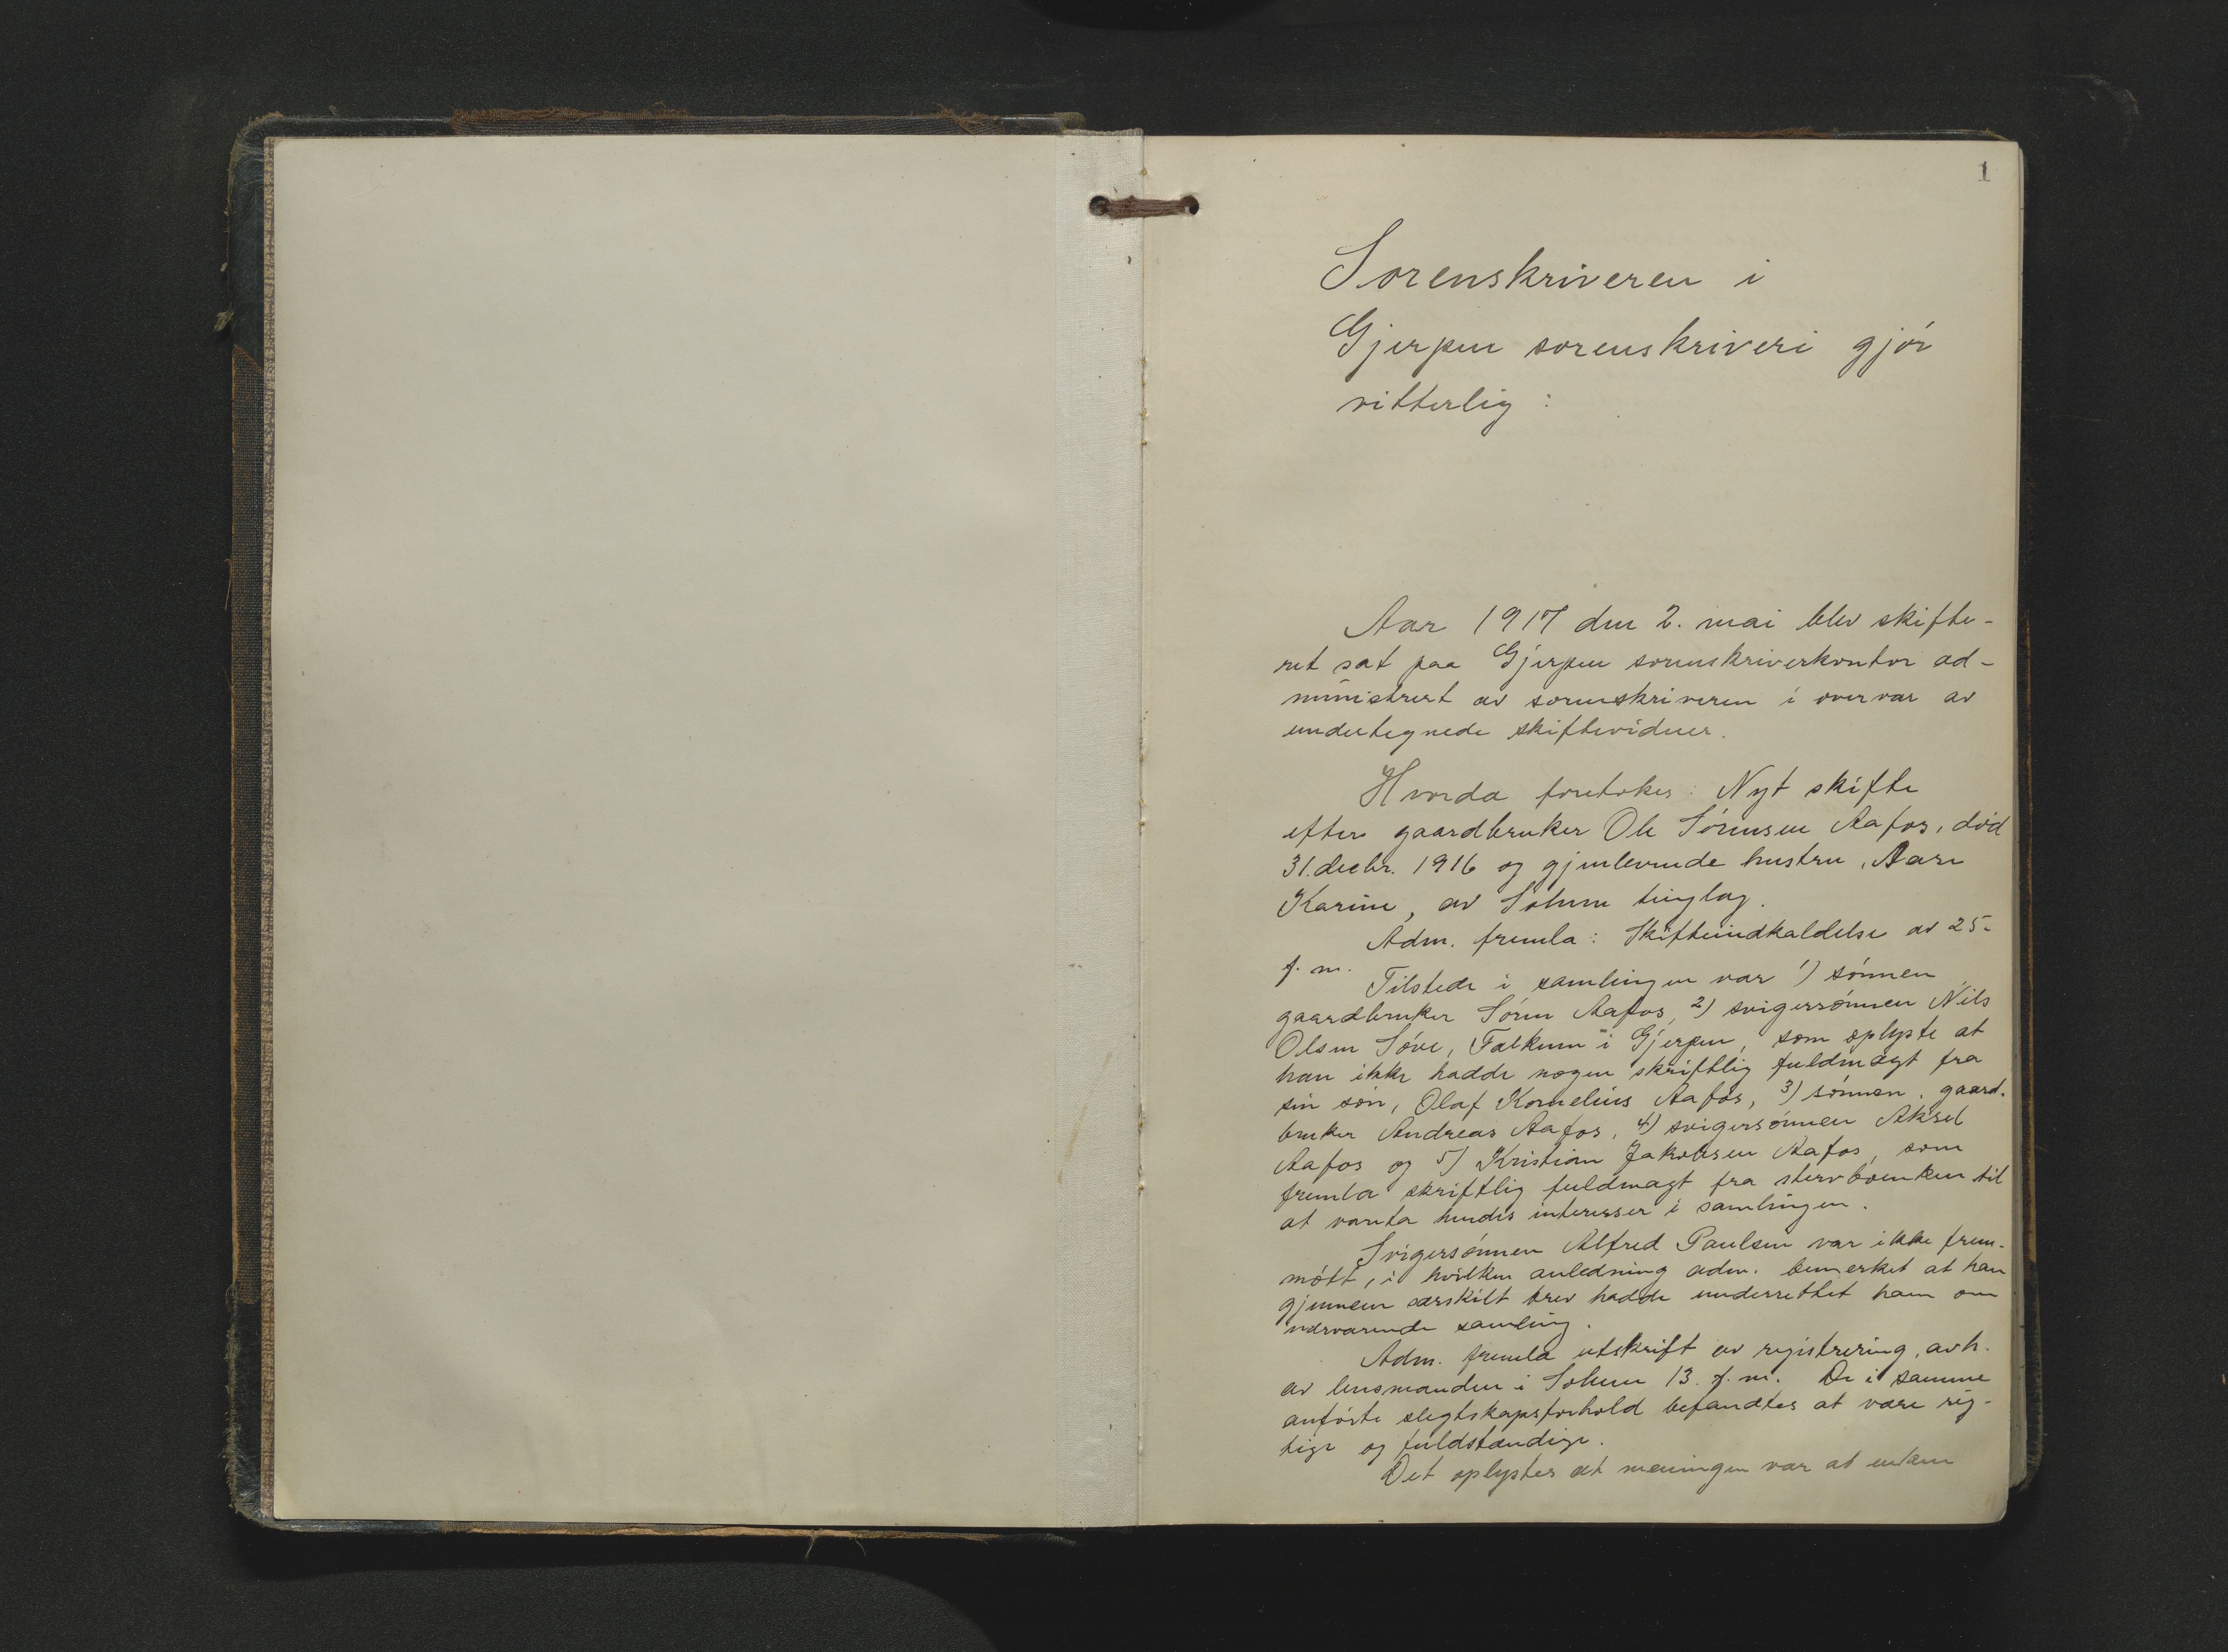 1
Sorenskriveren i
Gjerpen sorenskriveri gjör
vitterlig:
Aar 1917 den 2. mai blev skifte-
ret sat paa Gjerpen sorenskriverkontor ad-
ministrert av sorenskriveren i overvær av
undertegnede skiftevidner.
Hvorda foretokes: Nyt skifte
efter gaardbruker Ole Sörensen Aafos, död
31. decbr. 1916 og gjenlevende hustru,
Karine, av Solum tinglag.
Adm. fremla: Skifteindkaldelse av 25-
f. m.
Tilstede i samlingen var 1) sönnen
gaardbruker Sören Aafos, 2) svigersönnen Nils
Olsen Söve, Falkum i Gjerpen, som oplyste at
han ikke hadde nogen skriftlig fuldmagt fra
sin sön, Olaf Kornelius Aafos, 3) sönnen, gaard-
bruker Andreas Aafos, 4) svigersönnen Aksel
Aafos og 5) Kristian Jakobsen Aafos, som
fremla skriftlig fuldmagt fra stervboenken til
at vareta hendes interesser i samlingen.
Svigersönnen Alfred Paulsen var ikke frem-
mött, i hvilken anledning adm. bemerket at han
gjennem særskilt brev hadde underrettet ham om
nærværende samling.
Adm. fremla utskrift av registrering, avh.
av lensmanden i Solum 13. f. m. De i samme
anförte slegtskapsforhold befandtes at være rig-
tige og fuldstændige.
Det oplystes at meningen var at